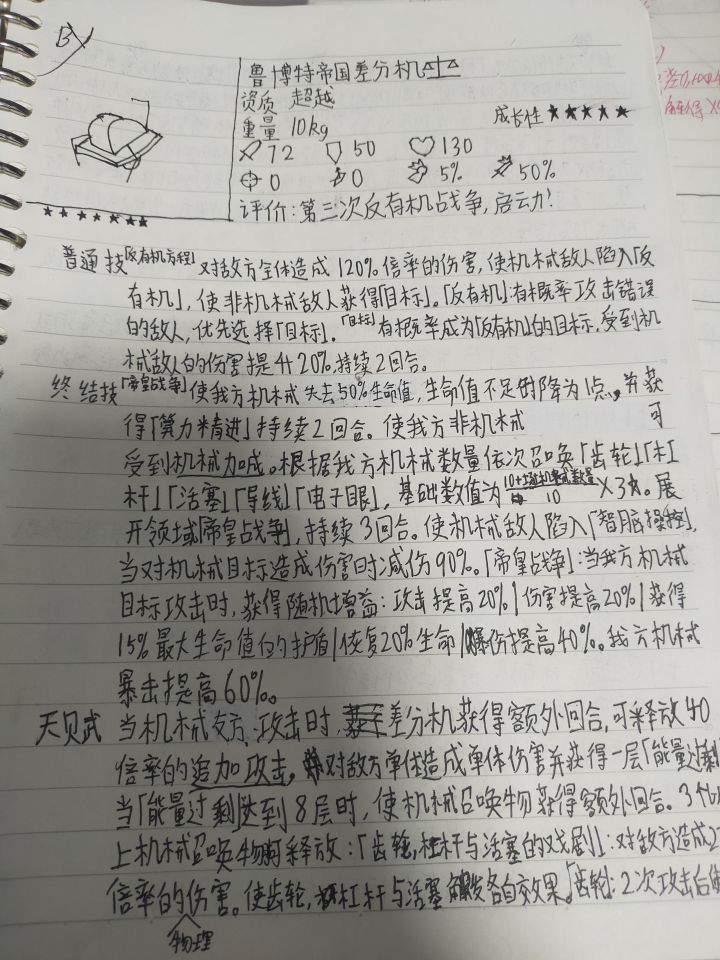 B
鲁博特帝国差分机
资质 超越
重量 10kg
成长性 ★★★★★
72 50 130
0 0 5% 50%
★★★★★★★
评价:第三次反有机战争,启动!
普通技「反有机方程」对敌方全体造成120%倍率的伤害,使机械敌人陷入「反
有机」,使非机械敌人获得「目标」。「反有机」:有概率攻击错误
的敌人,优先选择「目标」.「目标」有概率成为「反有机」的目标,受到机
械敌人的伤害提升20%,持续2回合。
终结技「帝皇战争」使我方机械失去50%生命值,生命值不足时降为1点,并获
得「算力精进」持续2回合。使我方非机械 可
受到机械加成。根据我方机械数量依次召唤「齿轮」「杠
杆」「活塞」「导线」「电子眼」,基础数值为 10+ 机械数量 10 ×3。展
开领域「帝皇战争」,持续3回合。使机械敌人陷入「智脑操控」,
当对机械目标造成伤害时减伤90%。「帝皇战争」:当我方机械
目标攻击时,获得随机增益:攻击提高20%|伤害提高20%|获得
15%最大生命值的护盾|恢复20%生命|爆伤提高40%。我方机械
暴击提高60%。
天贝武 当机械友方攻击时,差分机获得额外回合,可释放40
倍率的追加攻击。对敌方单体造成单体伤害并获得一层「能量过剩
当「能量过剩」达到8层时,使机械召唤物获得额外回合。3个以
上机械召唤物时释放:「齿轮,杠杆与活塞的戏剧」:对敌方造成2
倍率的物理伤害。使齿轮,杠杆与活塞 各自效果。「齿轮」:2次攻击后使